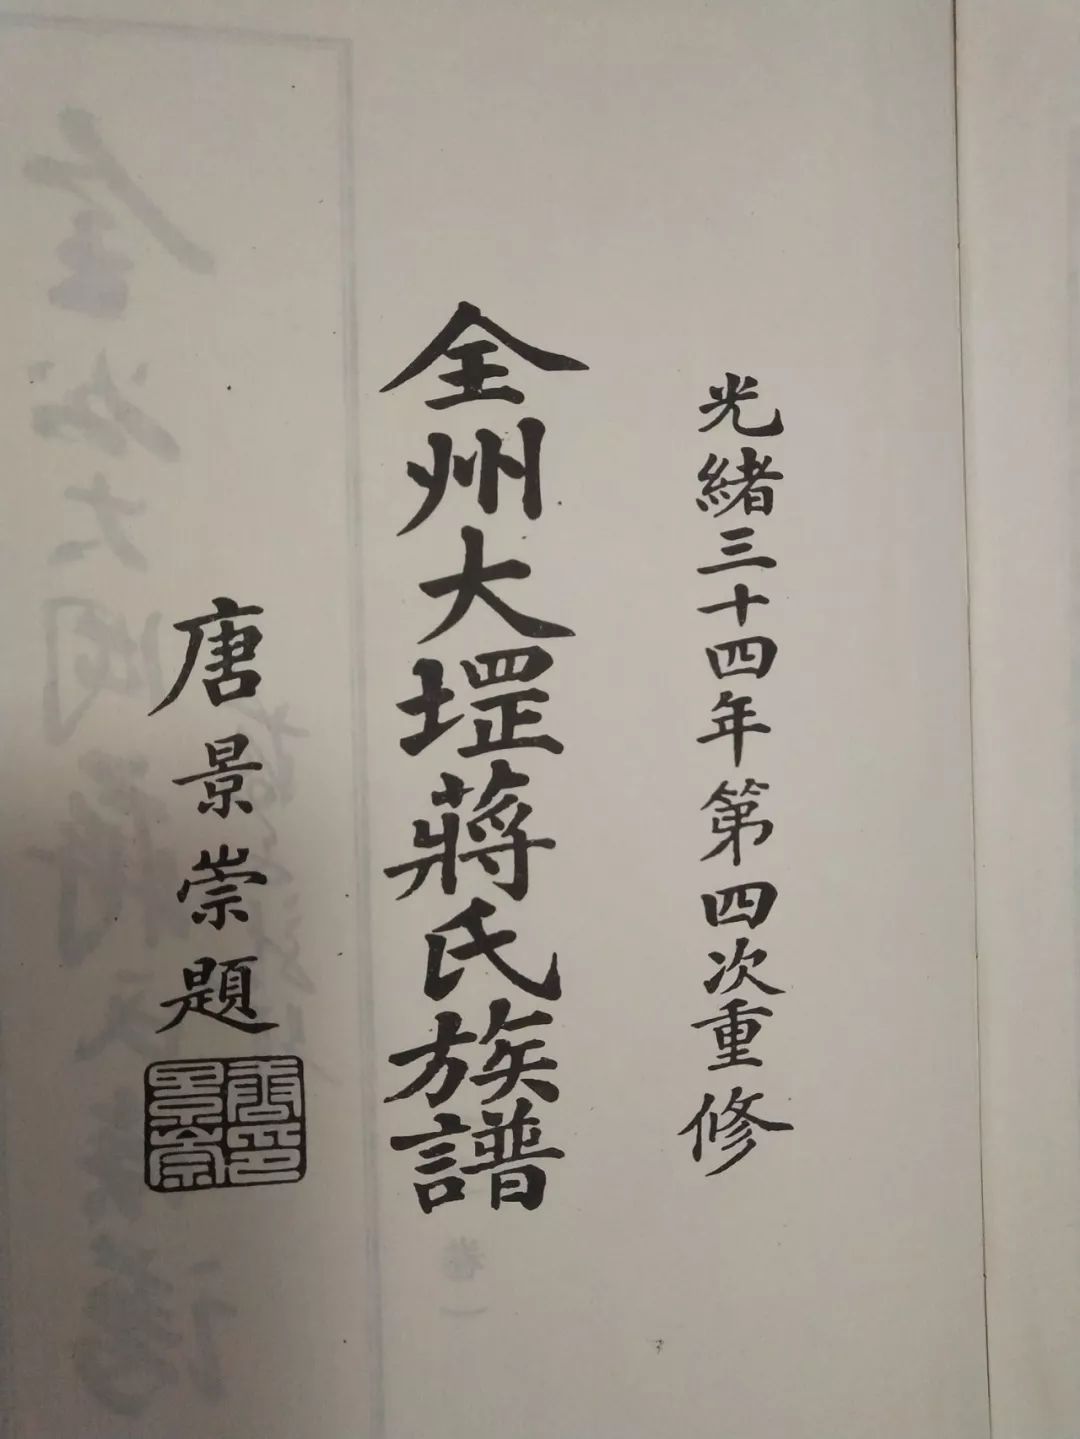 光緒三十四年第四次重修
全州大罡蔣氏族譜
唐景崇題
唐景崇印
卷一